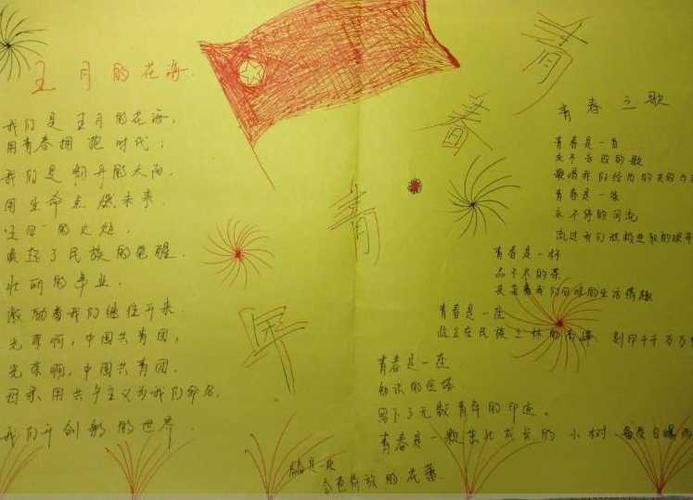 五月的花海
我们是五月的花海,
用青春拥抱时代;
我们是初升的太阳,
用生命点燃未来.
"五四"的火炬,
唤起了民族的觉醒.
壮丽的事业,
激励着我们继往开来.
光荣啊,中国共青团,
光荣啊,中国共青团.
母亲用共产主义为我们命名,
我们开创新的世界.
青
春
青
年
青春之歌
青春是一首
永不
的歌
青春是一条
永不停的河流
流过我们
青春是一杯
品不尽的茶
我们
的生活情趣
青春是一座
在民族之林的
千千万万
青春是一座
知识的
留下了无数青年的印迹.
青春是一颗茁壮成长的小树
青春是一朵
的花蕾